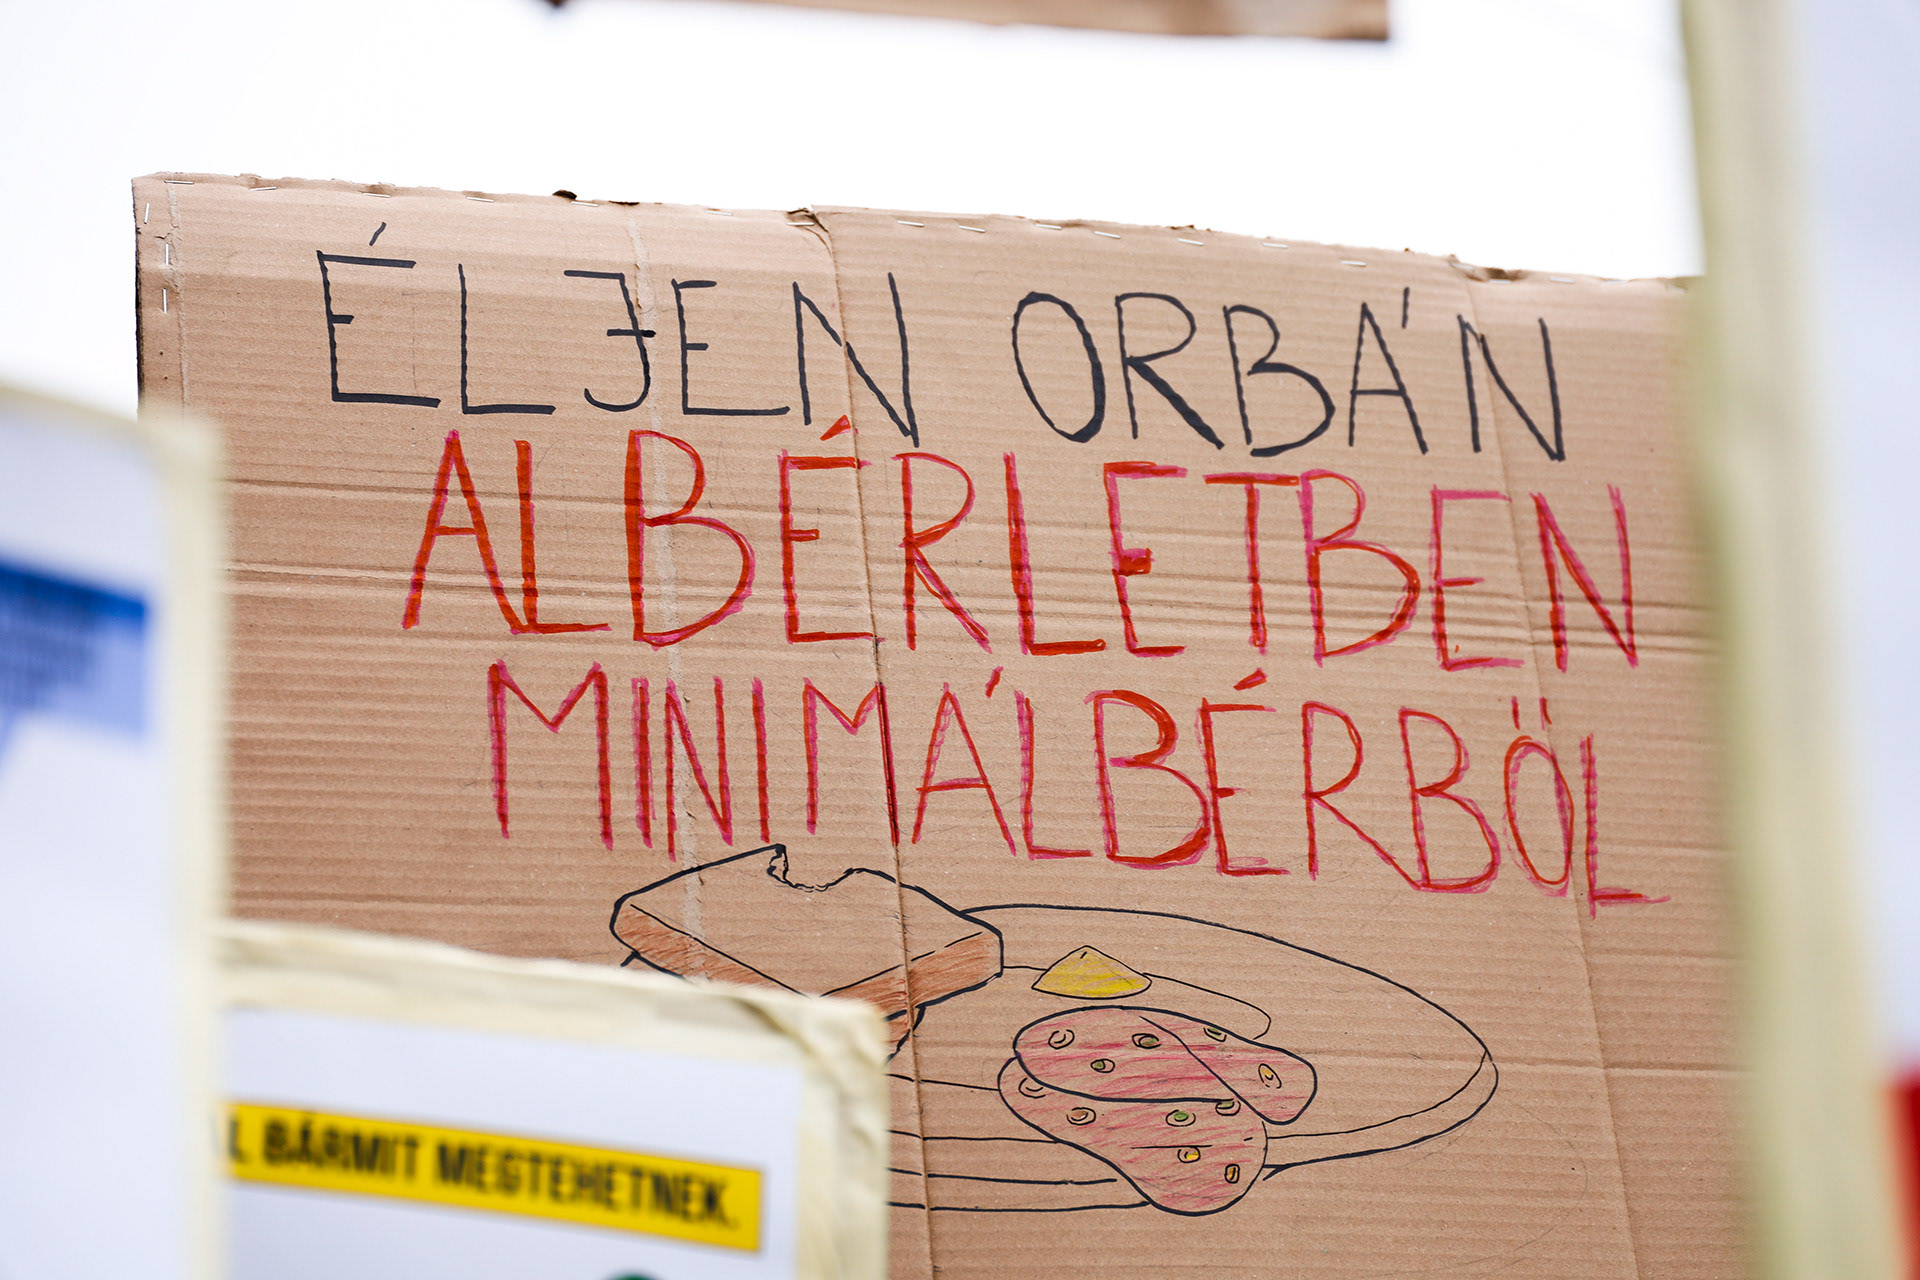 ÉLJEN ORBÁN
ALBÉRLETBEN
MINIMÁLBÉRBÖL
L BÁRMIT MEGTEHETNEK.